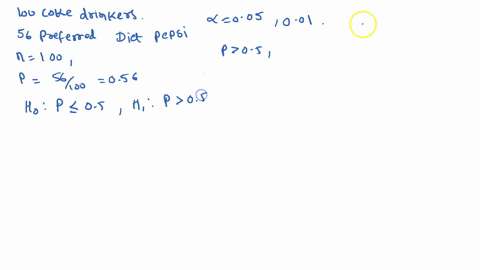 100 coke drinkers. α = 0.05, 0.01.
56 preferred Diet Pepsi
n = 100, P > 0.5,
P = 56/100 = 0.56
H₀: P ≤ 0.5, H₁: P > 0.5